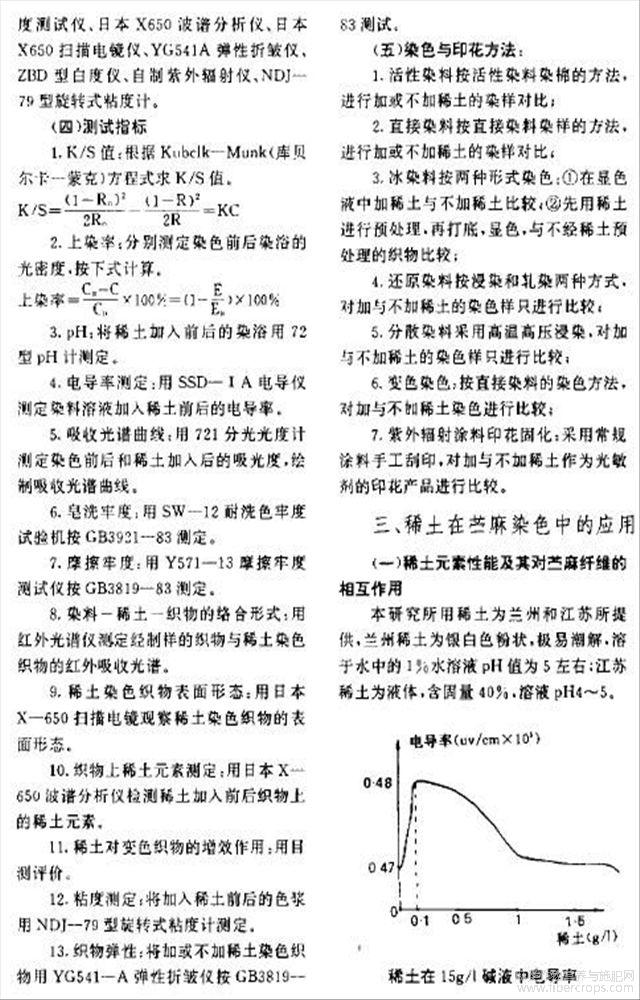 度测试仪、日本X650波谱分析仪、日本
X650扫描电镜仪、YG541A弹性折皱仪、
ZBD型白度仪、自制紫外辐射仪、NDJ—
79型旋转式粘度计。
(四)测试指标
1. K/S值:根据Kubclk—Munk(库贝
尔卡—蒙克)方程式求K/S值。
K/S=(1-Rₙ)²/2Rₙ - (1-R)²/2R=KC
2. 上染率:分别测定染色前后染浴的
光密度,按下式计算。
上染率=(C₀-C)/C₀×100%=(1-E/E₀)×100%
3. pH:将稀土加入前后的染浴用72
型pH计测定。
4. 电导率测定:用SSD—ⅠA电导仪
测定染料溶液加入稀土前后的电导率。
5. 吸收光谱曲线:用721分光光度计
测定染色前后和稀土加入后的吸光度,绘
制吸收光谱曲线。
6. 皂洗牢度:用SW—12耐洗色牢度
试验机按GB3921—83测定。
7. 摩擦牢度:用Y571—13摩擦牢度
测试仪按GB3819—83测定。
8. 染料—稀土—织物的络合形式:用
红外光谱仪测定经制样的织物与稀土染色
织物的红外吸收光谱。
9. 稀土染色织物表面形态:用日本
X—650扫描电镜观察稀土染色织物的表
面形态。
10. 织物上稀土元素测定:用日本X—
650波谱分析仪检测稀土加入前后织物上
的稀土元素。
11. 稀土对变色织物的增效作用:用目
测评价。
12. 粘度测定:将加入稀土前后的色浆
用NDJ—79型旋转式粘度计测定。
13. 织物弹性:将加或不加稀土染色织
物用YG541—A弹性折皱仪按GB3819—
83测试。
(五)染色与印花方法:
1. 活性染料按活性染料染棉的方法,
进行加或不加稀土的染样对比;
2. 直接染料按直接染料染样的方法,
进行加或不加稀土的染样对比;
3. 冰染料按两种形式染色:①在显色
液中加稀土与不加稀土比较;②先用稀土
进行预处理,再打底,显色,与不经稀土预
处理的织物比较;
4. 还原染料按浸染和轧染两种方式,
对加与不加稀土的染色样只进行比较;
5. 分散染料采用高温高压浸染,对加
与不加稀土的染色样只进行比较;
6. 变色染色:按直接染料的染色方法,
对加与不加稀土染色进行比较;
7. 紫外辐射涂料印花固化:采用常规
涂料手工刮印,对加与不加稀土作为光敏
剂的印花产品进行比较。
三、稀土在苎麻染色中的应用
(一)稀土元素性能及其对苎麻纤维的
相互作用
本研究所用稀土为兰州和江苏所提
供,兰州稀土为银白色粉状,极易潮解,溶
于水中的1%水溶液pH值为5左右;江苏
稀土为液体,含固量40%,溶液pH4~5。
电导率(uv/cm×10³)
0.48
0.47
0
0.1
0.5
1
1.5
稀土(g/l)
稀土在15g/l碱液中电导率
www.fibercrops.com